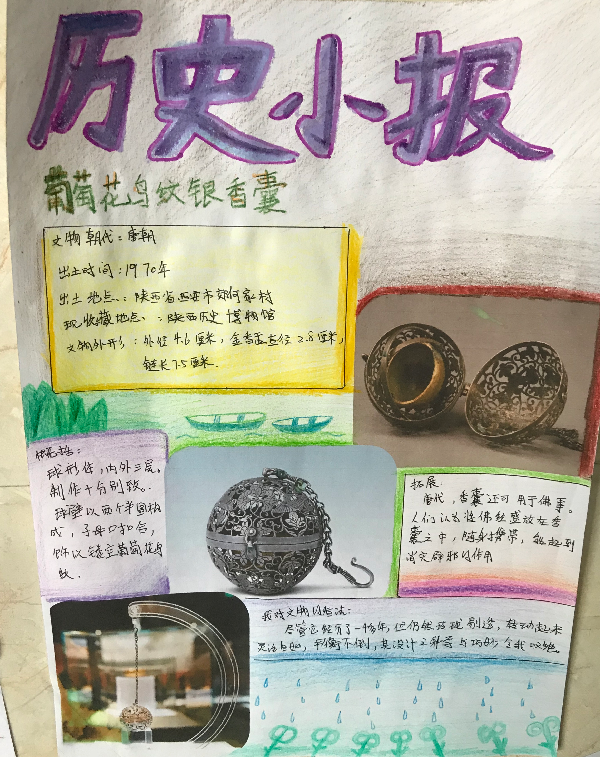 历史小报
葡萄花鸟纹银香囊
文物朝代：唐朝
出土时间：1970年
出土地点：陕西省西安市郊何家村
现收藏地点：陕西历史博物馆
文物外形：外径4.6厘米，金香盂直径2.8厘米，
链长7.5厘米.
特点：
球形体，内外三层，
制作十分别致。
球壁以两个半圆构
成，子母口扣合，
饰以镂空葡萄花鸟
纹。
拓展：
唐代，香囊还可用于佛事。
人们认为将佛经盛放在香
囊之中，随身携带，能起到
消灾辟邪的作用
我对文物的看法：
尽管已经有了一千多年，但仍然玲珑别透，转动起来
灵活自如，平衡不倒，其设计之科学与巧妙令我叹绝.